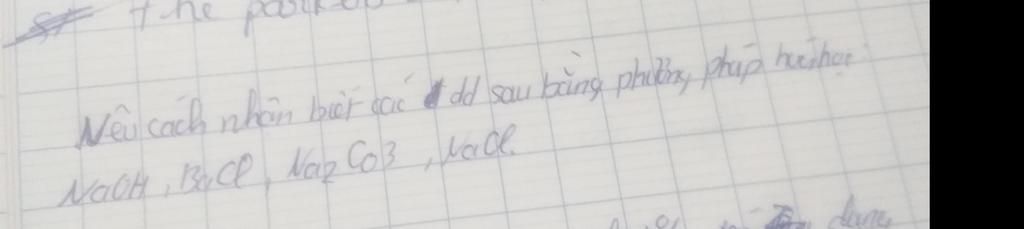 the
Nêu cách nhận biết các dd sau bằng phương pháp hoá học
NaOH, BaCl, Na2CO3, NaCl.
dung